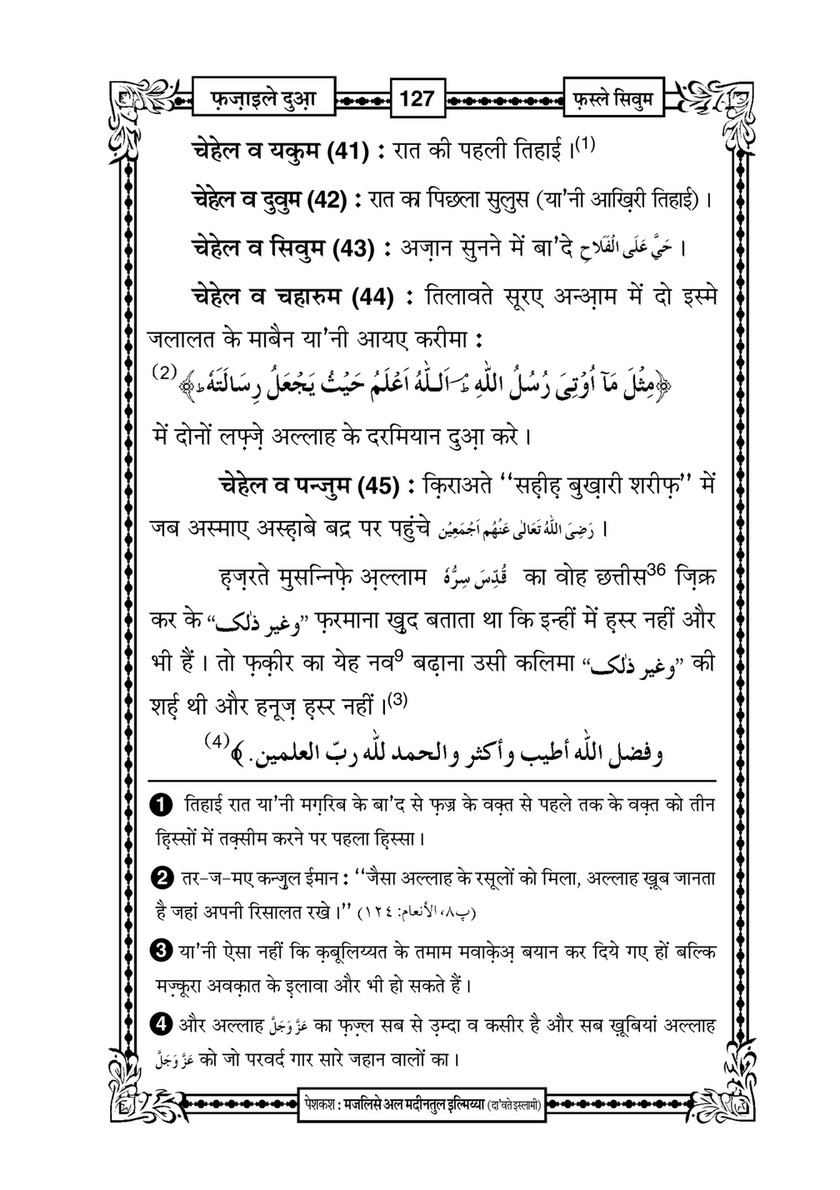 फ़ज़ाइले दुआ़
127
फ़स्ले सिवुम
चेहेल व यकुम (41) : रात की पहली तिहाई ।(1)
चेहेल व दुवुम (42) : रात का पिछला सुलुस (या'नी आख़िरी तिहाई) ।
चेहेल व सिवुम (43) : अज़ान सुनने में बा'दे حَیَّ عَلَی الْفَلَاحِ ।
चेहेल व चहारुम (44) : तिलावते सूरए अन्आ़म में दो इस्मे
जलालत के माबैन या'नी आयए करीमा :
﴿مِثْلَ مَاۤ اُوْتِیَ رُسُلُ اللّٰهِ ؕۘ اَللّٰهُ اَعْلَمُ حَیْثُ یَجْعَلُ رِسَالَتَهٗ ؕ﴾(2)
में दोनों लफ़्ज़े अल्लाह के दरमियान दुआ़ करे ।
चेहेल व पन्जुम (45) : क़िराअते ‘‘सह़ीह़ बुख़ारी शरीफ़’’ में
जब अस्माए अस्ह़ाबे बद्र पर पहुंचे رَضِیَ اللّٰهُ تَعَالٰی عَنْهُم اَجْمَعِیْن ।
ह़ज़रते मुसन्निफ़े अ़ल्लाम قُدِّسَ سِرُّهٗ का वोह छत्तीस36 ज़िक्र
कर के “وغیر ذٰلک” फ़रमाना ख़ुद बताता था कि इन्हीं में ह़स्र नहीं और
भी हैं । तो फ़क़ीर का येह नव9 बढ़ाना उसी कलिमा “وغیر ذٰلک” की
शर्ह़ थी और हनूज़ ह़स्र नहीं ।(3)
وفضل اللّٰه أطیب وأکثر والحمد للّٰه ربّ العلمین. ﴾(4)
1 तिहाई रात या'नी मग़रिब के बा'द से फ़ज्र के वक़्त से पहले तक के वक़्त को तीन
हि़स्सों में तक़्सीम करने पर पहला हि़स्सा ।
2 तर-ज-मए कन्ज़ुल ईमान : ‘‘जैसा अल्लाह के रसूलों को मिला, अल्लाह ख़ूब जानता
है जहां अपनी रिसालत रखे ।’’ (پ٨، الأنعام: ١٢٤)
3 या'नी ऐसा नहीं कि क़बूलिय्यत के तमाम मवाके़अ़ बयान कर दिये गए हों बल्कि
मज़्कूरा अवक़ात के इ़लावा और भी हो सकते हैं ।
4 और अल्लाह عَزَّوَجَلَّ का फ़ज़्ल सब से उ़म्दा व कसीर है और सब ख़ूबियां अल्लाह
عَزَّوَجَلَّ को जो परवर्द गार सारे जहान वालों का ।
पेशकश : मजलिसे अल मदीनतुल इ़ल्मिय्या (दा'वते इस्लामी)